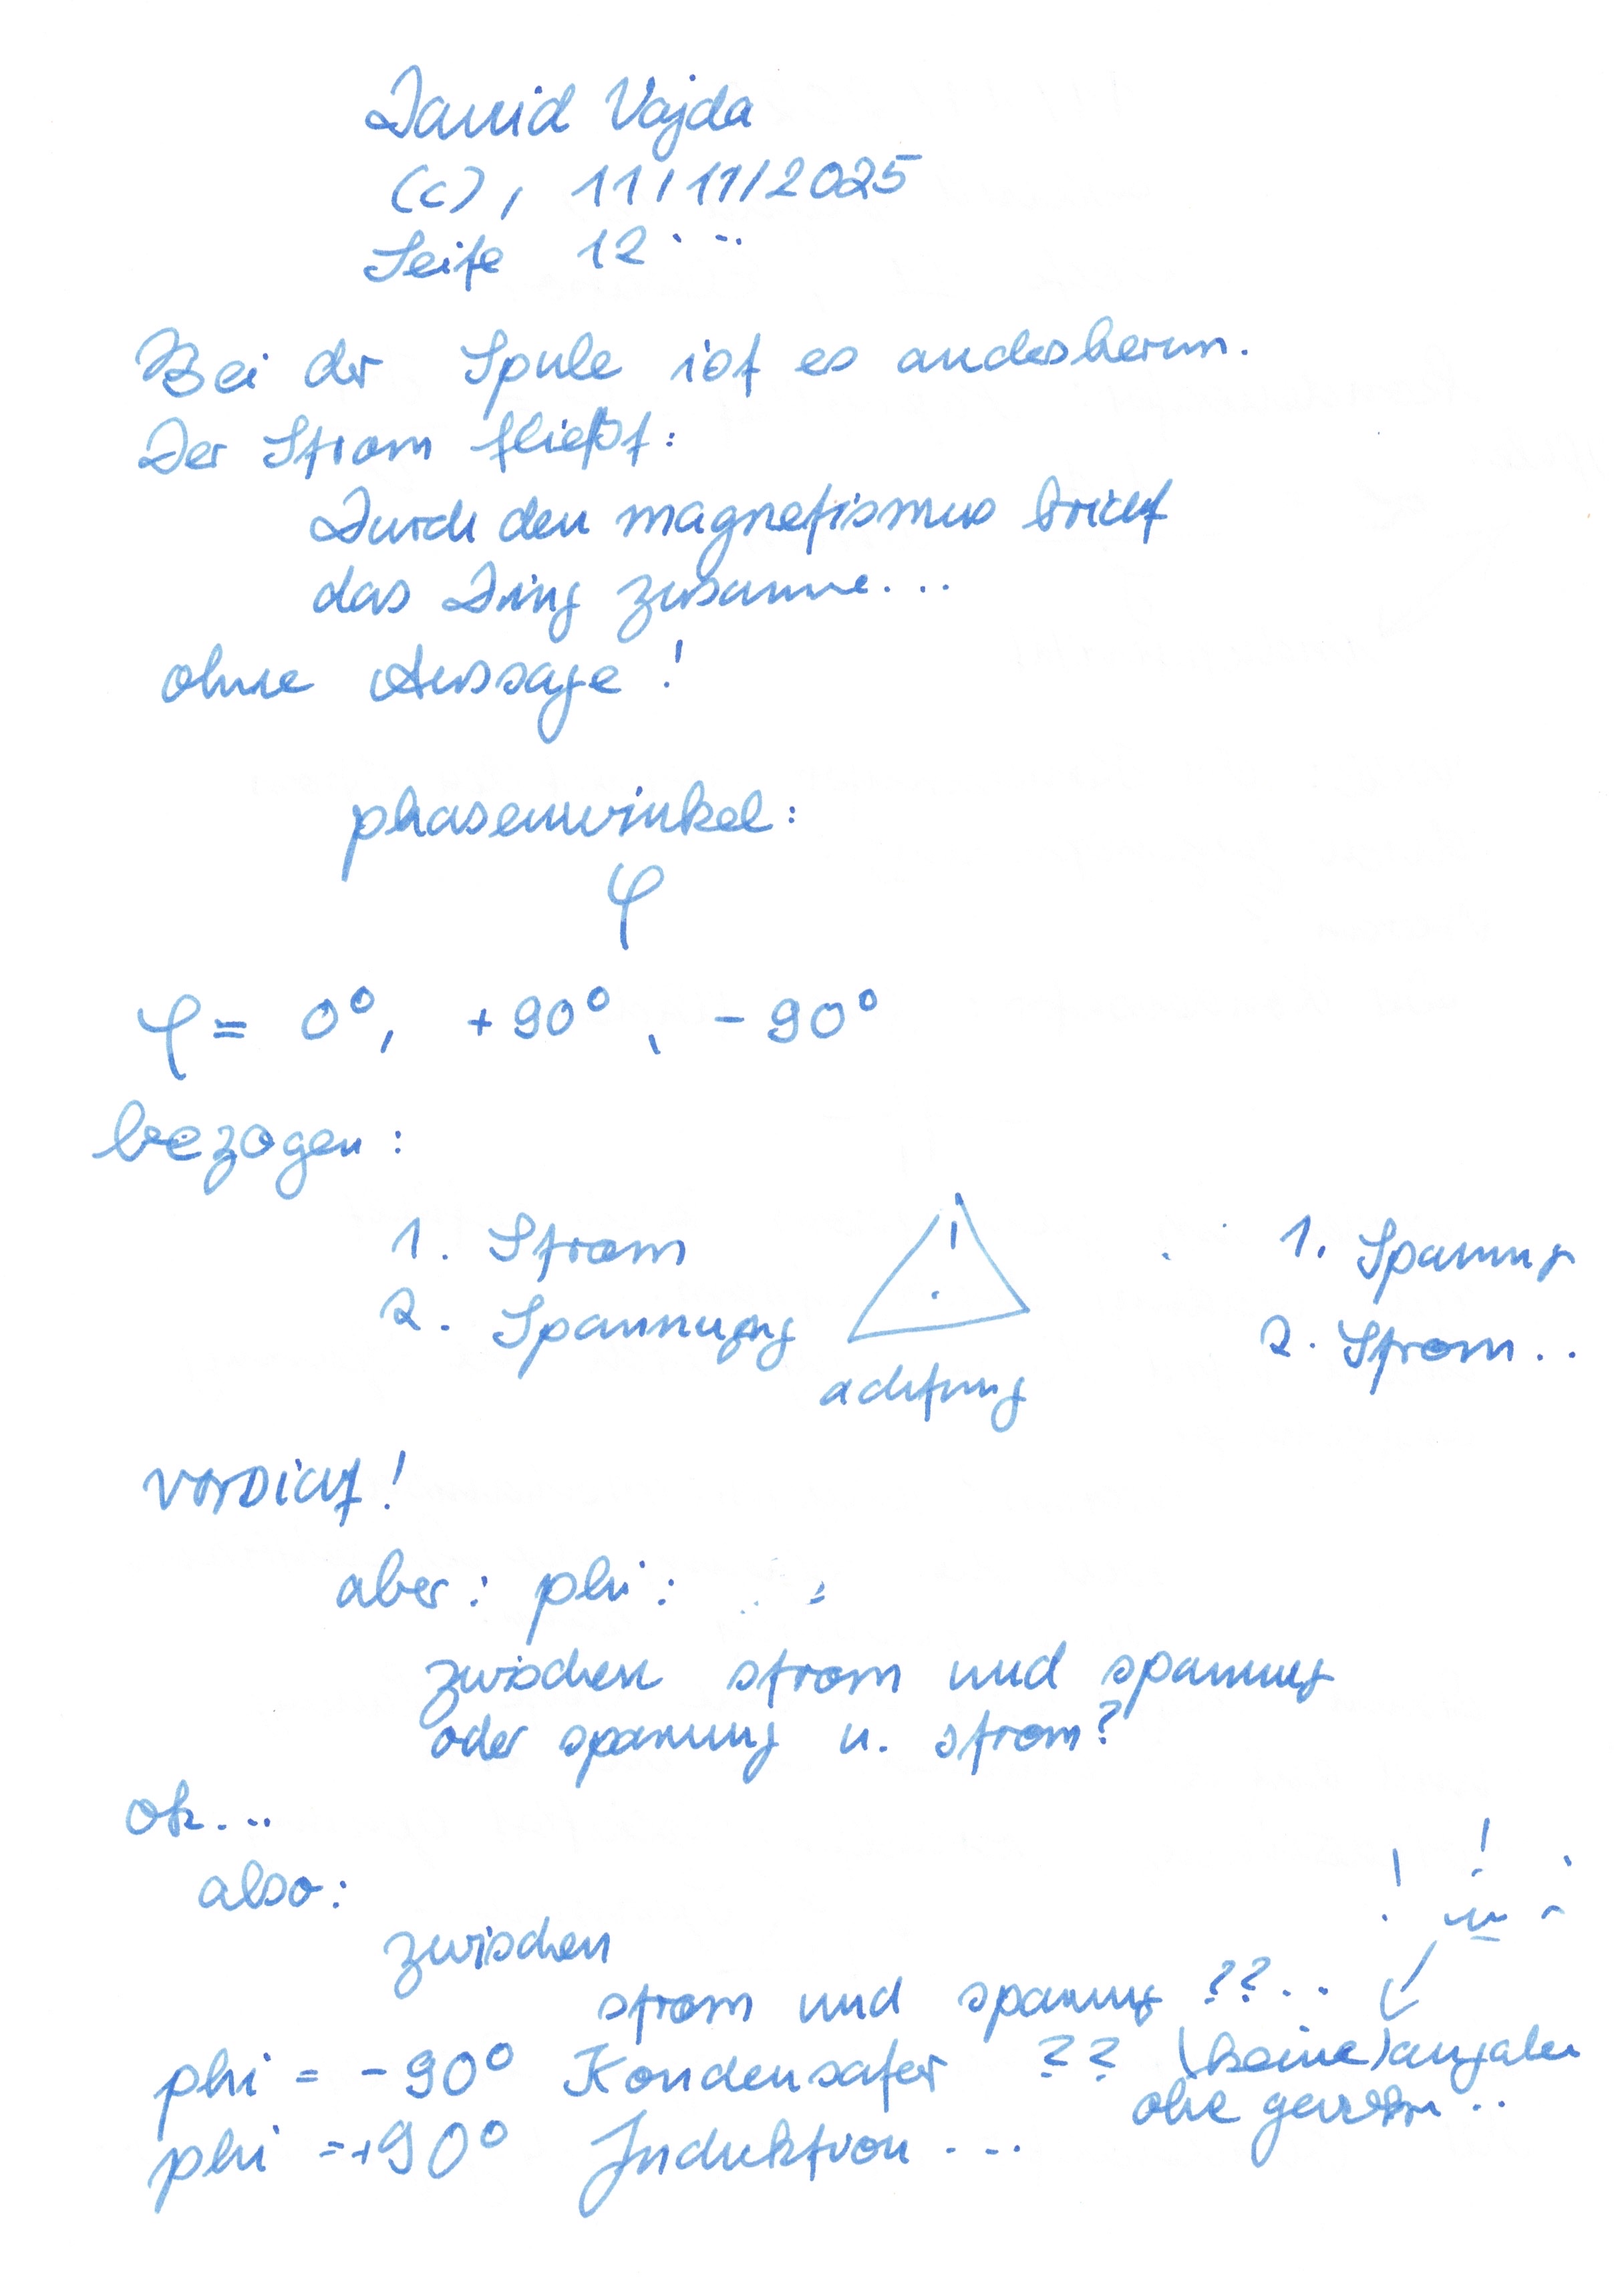 David Vajda
(c), 11/11/2025
Seite 12...
Bei der Spule ist es andesherum.
Der Strom fließt:
Durch den magnetismus bricht
das Ding zusamme...
ohne Aussage!
phasenwinkel:
φ
φ = 0°, +90°, -90°
bezogen:
1. Strom
2. Spannung
!
achtung
1. Spannung
2. Strom..
vorsicht!
aber: phi:
zwischen strom und spannung
oder spannung u. strom?
ok...
also:
zwischen
strom und spannung ??..
phi = -90° Kondensater ?? (keine) angaben
ohe
phi = +90° Induktion...
! !